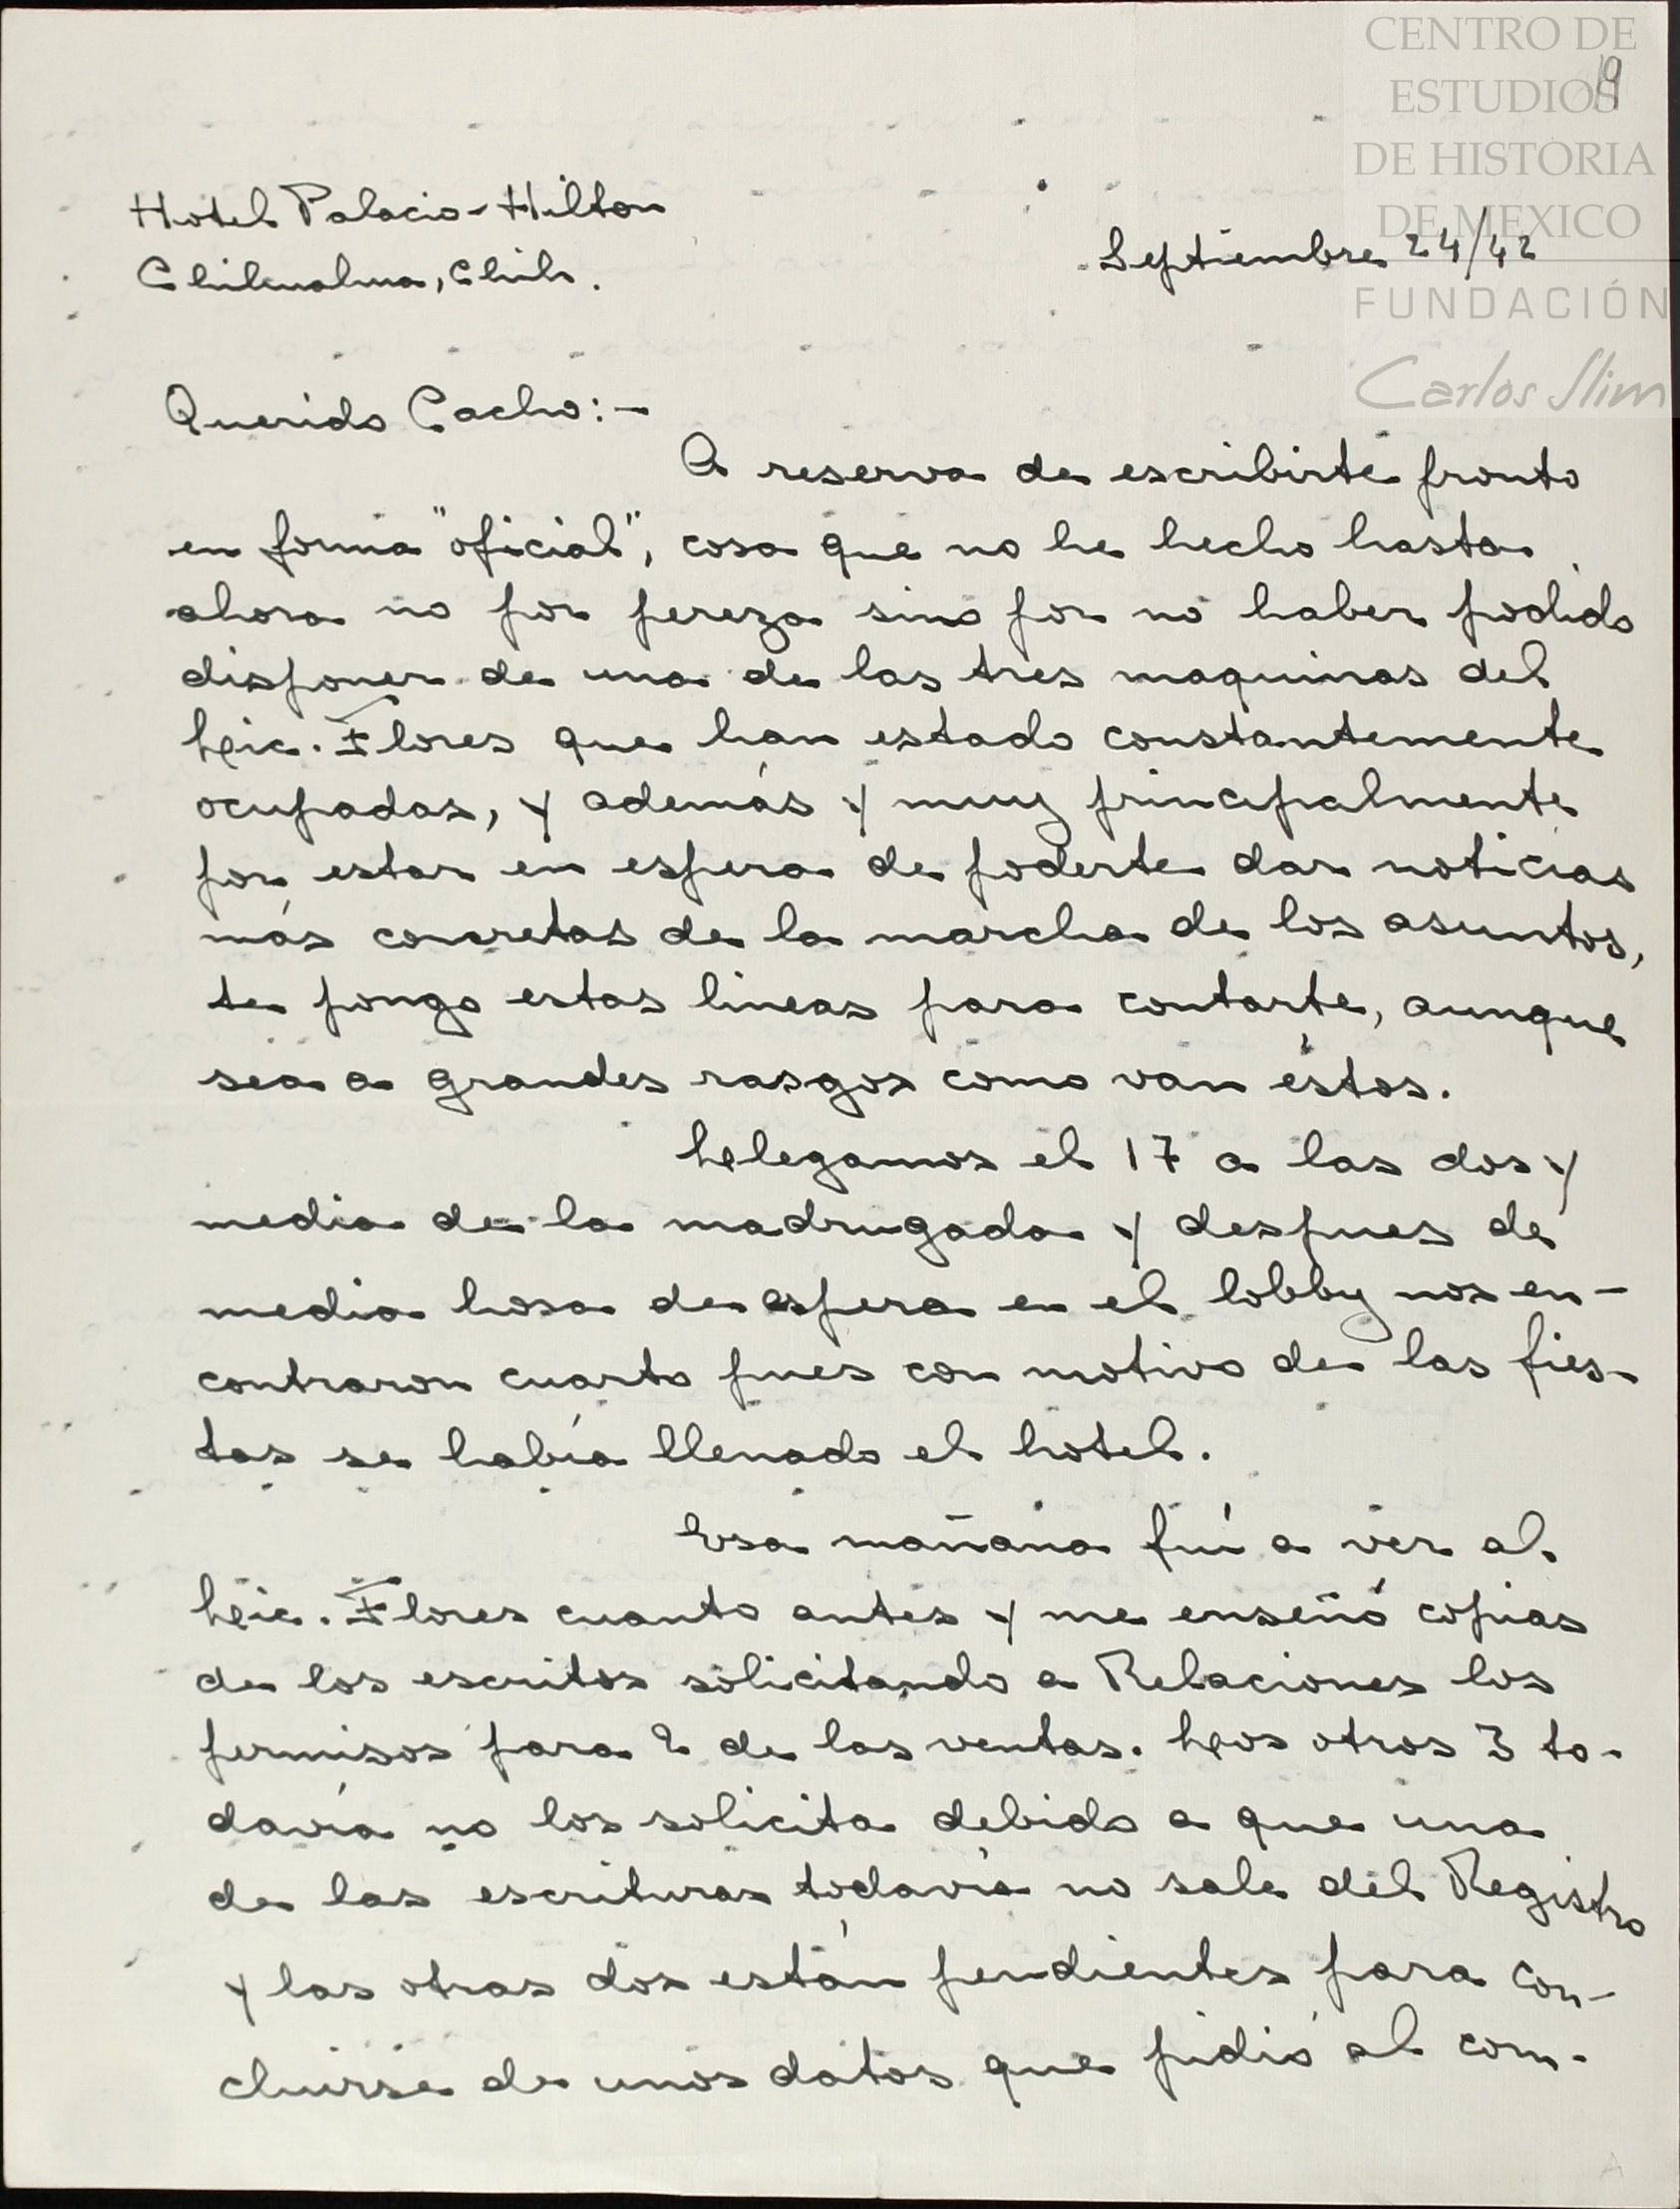 CENTRO DE
ESTUDIOS
DE HISTORIA
DE MEXICO
FUNDACIÓN
Carlos Slim
19
Hotel Palacio-Hilton
Chihuahua, Chih.
Septiembre 24/42
Querido Cacho:-
A reserva de escribirte pronto
en forma "oficial", cosa que no he hecho hasta
ahora no por pereza sino por no haber podido
disponer de una de las tres maquinas del
Lic. Flores que han estado constantemente
ocupadas, y además y muy principalmente
por estar en espera de poderte dar noticias
más concretas de la marcha de los asuntos,
te pongo estas lineas para contarte, aunque
sea a grandes rasgos como van éstos.
Llegamos el 17 a las dos y
media de la madrugada y despues de
media hora de espera en el lobby nos en-
contraron cuarto pues con motivo de las fies-
tas se había llenado el hotel.
Esa mañana fuí a ver al
Lic. Flores cuanto antes y me enseñó copias
de los escritos solicitando a Relaciones los
permisos para 2 de las ventas. Los otros 3 to-
davía no los solicita debido a que una
de las escrituras todavía no sale del Registro
y las otras dos están pendientes para con-
cluirse de unos datos que pidió al com-